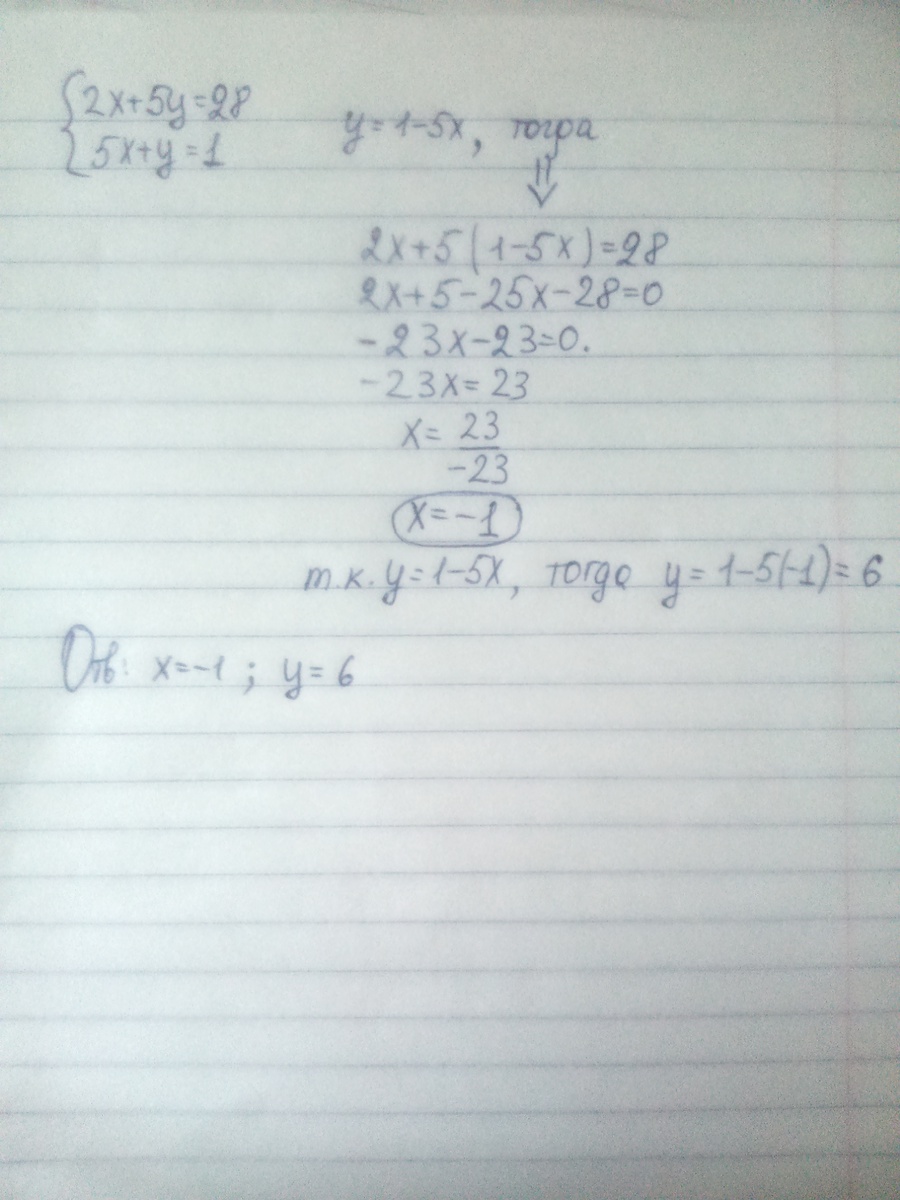 {2x+5y=28
5x+y=1
y=1-5x, тогда
⇓
2x+5(1-5x)=28
2x+5-25x-28=0
-23x-23=0.
-23x=23
x= 23
-23
x=-1
т.к. y=1-5x, тогда y=1-5(-1)=6
Отв: x=-1 ; y=6